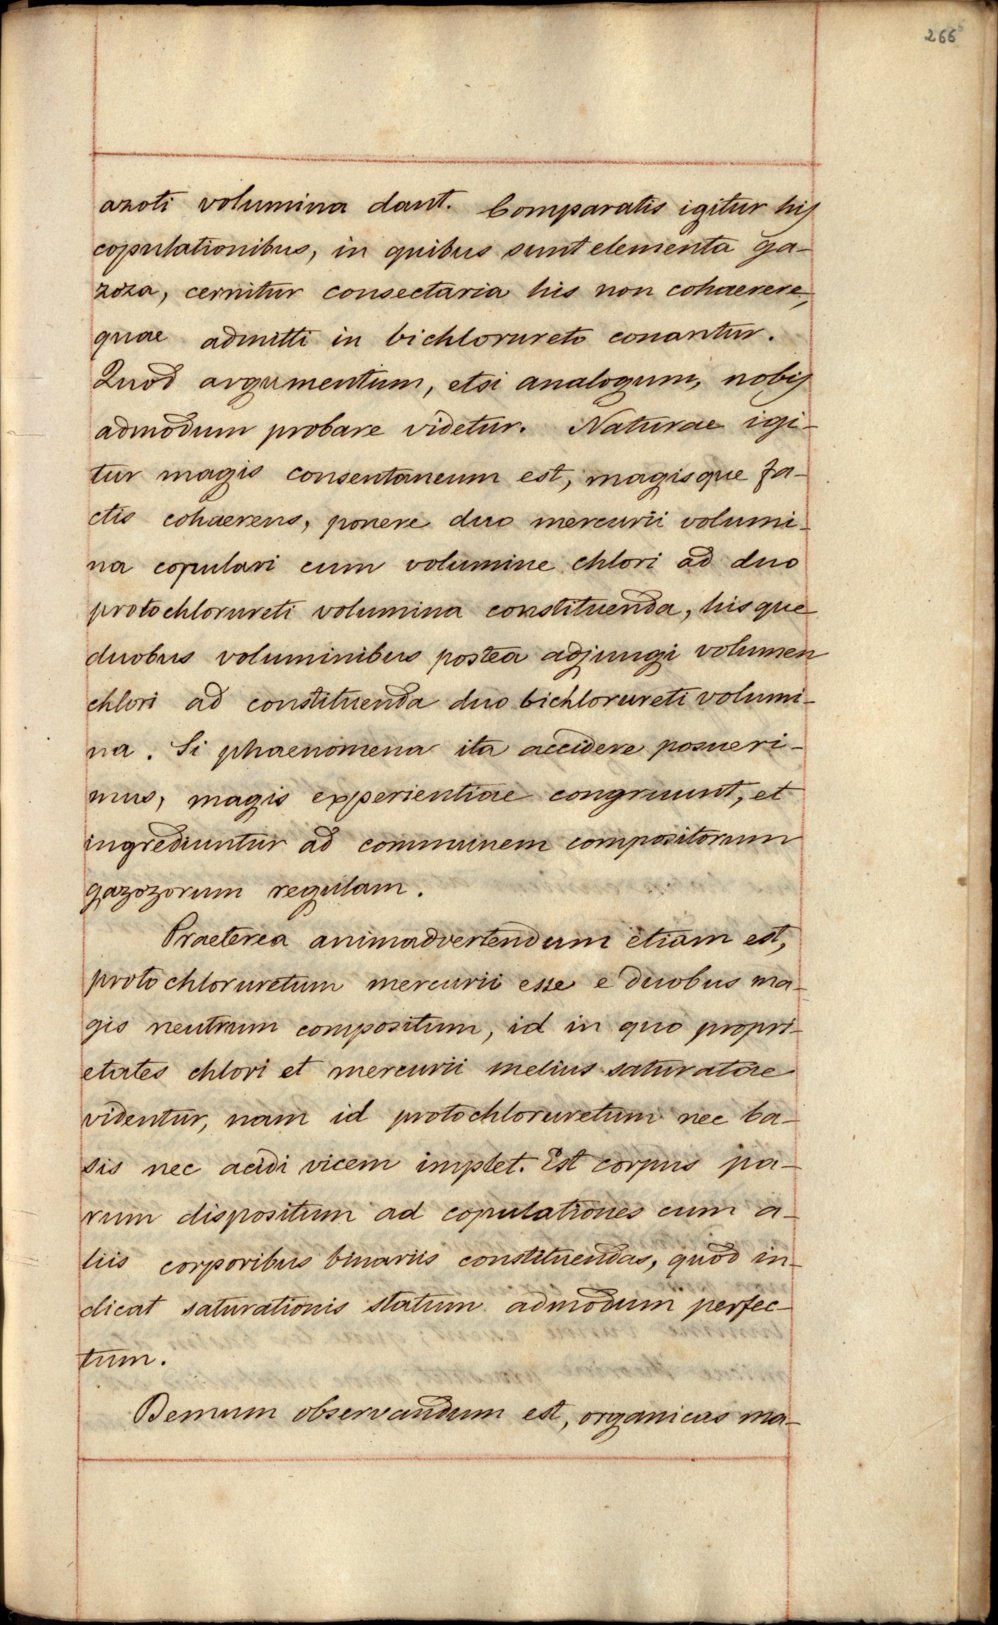 266
azoti volumina dant. Comparatis igitur his
copulationibus, in quibus sunt elementa ga-
zoza, cernitur consectaria his non cohaerere,
quae admitti in bichlorureto conantur.
Quod argumentum, etsi analogum, nobis
admodum probare videtur. Naturae igi-
tur magis consentaneum est, magisque fa-
ctis cohaerens, ponere duo mercurii volumi-
na copulari cum volumine chlori ad duo
protochlorureti volumina constituenda, hisque
duobus voluminibus postea adjungi volumen
chlori ad constituenda duo bichlorureti volumi-
na. Si phaenomena ita accidere posueri-
mus, magis experientiae congruunt, et
ingrediuntur ad communem compositorum
gazozorum regulam.
Praeterea animadvertendum etiam est,
protochloruretum mercurii esse e duobus ma-
gis neutrum compositum, id in quo propri-
etates chlori et mercurii melius saturatae
videntur, nam id protochloruretum nec ba-
sis nec acidi vicem implet. Est corpus pa-
rum dispositum ad copulationes cum a-
liis corporibus binariis constituendas, quod in-
dicat saturationis statum admodum perfec-
tum.
Demum observandum est, organicas ma-